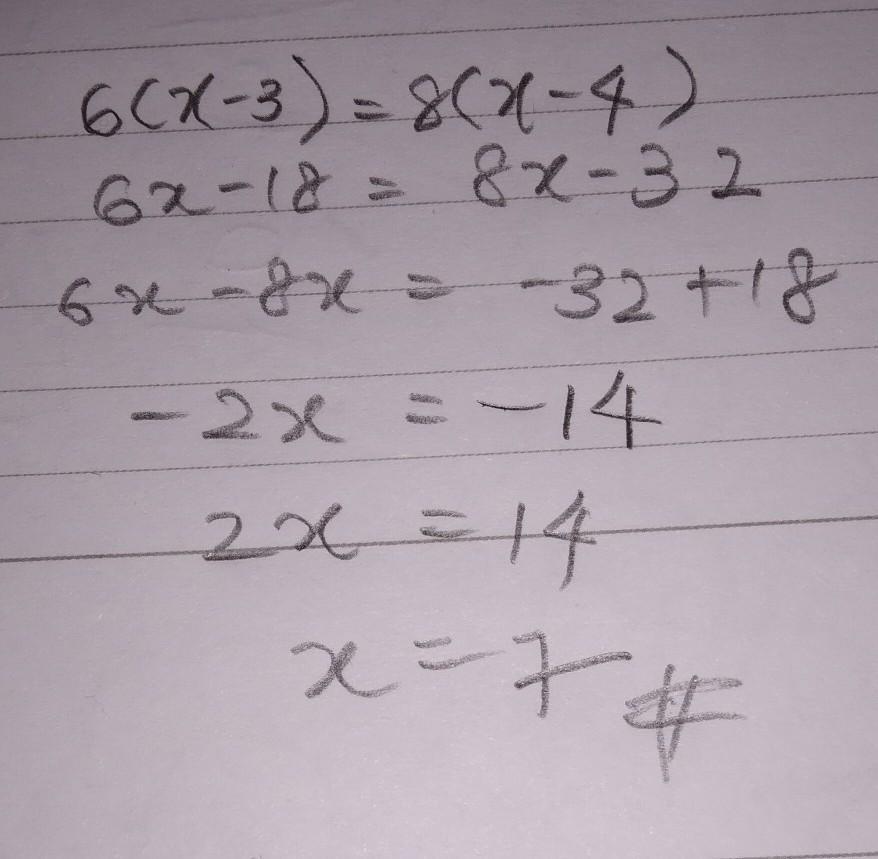 6(x-3) = 8(x-4)
6x-18 = 8x-32
6x-8x = -32+18
-2x = -14
2x = 14
x = 7 #